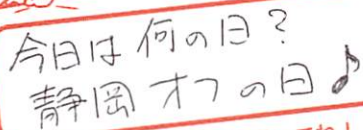 今日は何の日?
静岡オフの日♪